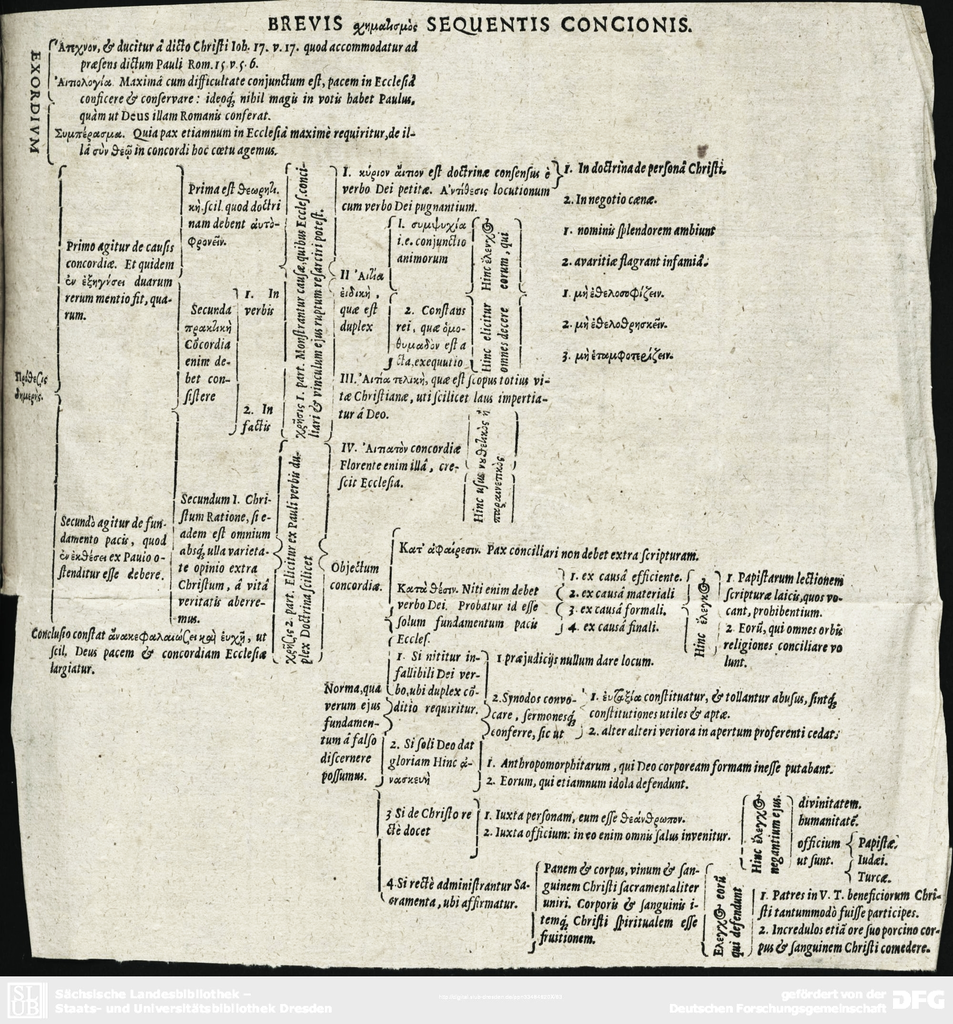 BREVIS χηματισμὸς SEQUENTIS CONCIONIS.
EXORDIVM
Ἄτεχνον, & ducitur á dicto Christi Ioh. 17. v. 17. quod accommodatur ad
præsens dictum Pauli Rom. 15 v. 5. 6.
Ἀιτιολογία. Maximâ cum difficultate conjunctum est, pacem in Ecclesiâ
conficere & conservare: ideoq́; nihil magis in votis habet Paulus,
quàm ut Deus illam Romanis conferat.
Συμπέρασμα. Quia pax etiamnum in Ecclesiâ maximè requiritur, de il-
lâ σὺν θεῷ in concordi hoc cœtu agemus.
Πρόθεσις
διμερής.
Primo agitur de causis
concordiæ. Et quidem
ἐν ἐξηγήσει duarum
rerum mentio fit, qua-
rum.
Prima est θεωρητι-
κὴ, scil. quod doctri
nam debent ἀυτο-
φρονεῖν.
Secunda
πρακτικὴ
Cōcordia
enim de-
bet con-
sistere
1. In
verbis
2. In
factis
χρῆσις 1. part. Monstrantur causæ, quibus Eccles. conci-
liari & vinculum ejus ruptum resarciri potest.
I. κύριον ἄιτιον est doctrinæ consensus è
verbo Dei petitæ. Αντίθεσις locutionum
cum verbo Dei pugnantium.
1. In doctrina de personâ Christi.
2. In negotio cœnæ.
II Ἀιτία
ἐιδικὴ,
quæ est
duplex
1. συμψυχία
i.e. conjunctio
animorum
2. Constans
rei, quæ ὁμο-
θυμαδὸν est a
cta, exequutio
Hinc ἔλεγχος
eorum, qui
1. nominis splendorem ambiunt
2. avaritiæ flagrant infamiâ.
Hinc elicitur
omnes decere
1. μὴ ἐθελοσοφίζειν.
2. μὴ ἐθελοθρησκεῖν.
3. μὴ ἐπαμφοτερίζειν.
III. Ἀιτία τελικὴ, quæ est scopus totius vi-
tæ Christianæ, uti scilicet laus impertia-
tur á Deo.
IV. Ἀιτιατὸν concordiæ
Florente enim illâ, cre-
scit Ecclesia.
Hinc usus νουθετικὸς ἢ
παραινετικὸς
Secundò agitur de fun-
damento pacis, quod
ἐν ἐκθέσει ex Paulo o-
stenditur esse debere.
Secundum I. Chri-
stum Ratione, si e-
adem est omnium
absq́; ulla varieta-
te opinio extra
Christum, á vitâ
veritatis aberre-
mus.
χρῆσις 2. part. Elicitur ex Pauli verbis du-
plex Doctrina scilicet
Objectum
concordiæ.
Κατ' ἀφαίρεσιν. Pax conciliari non debet extra scripturam.
Κατὰ θέσιν. Niti enim debet
verbo Dei. Probatur id esse
solum fundamentum pacis
Eccles.
1. ex causâ efficiente.
2. ex causâ materiali
3. ex causâ formali.
4. ex causâ finali.
Hinc ἔλεγχος
1. Papistarum lectionem
scripturæ laicis, quos vo-
cant, prohibentium.
2. Eorū, qui omnes orbis
religiones conciliare vo
lunt.
Conclusio constat ἀνακεφαλαιώσει καὶ ἐυχῇ, ut
scil. Deus pacem & concordiam Ecclesiæ
largiatur.
Norma, qua
verum ejus
fundamen-
tum á falso
discernere
possumus.
1. Si nititur in-
fallibili Dei ver-
bo, ubi duplex cō-
ditio requiritur.
1 præjudicijs nullum dare locum.
2. Synodos convo-
care, sermonesq́;
conferre, sic ut
1. ἐυταξία constituatur, & tollantur abusus, sintq́;
constitutiones utiles & aptæ.
2. alter alteri veriora in apertum proferenti cedat.
2. Si soli Deo dat
gloriam Hinc ἀ-
νασκευὴ
1. Anthropomorphitarum, qui Deo corpoream formam inesse putabant.
2. Eorum, qui etiamnum idola defendunt.
3 Si de Christo re
ctè docet
1. Iuxta personam, eum esse θεάνθρωπον.
2. Iuxta officium: in eo enim omnis salus invenitur.
Hinc ἔλεγχος
negantium ejus
divinitatem.
humanitatē.
officium
ut sunt.
Papistæ.
Iudæi.
Turcæ.
4. Si rectè administrantur Sa-
cramenta, ubi affirmatur.
Panem & corpus, vinum & san-
guinem Christi sacramentaliter
uniri. Corporis & sanguinis i-
temq́; Christi spiritualem esse
fruitionem.
Ελεγχος eorū
qui defendunt
1. Patres in V. T. beneficiorum Chri-
sti tantummodò fuisse participes.
2. Incredulos etiā ore suo porcino cor-
pus & sanguinem Christi comedere.
SLUB
Sächsische Landesbibliothek –
Staats- und Universitätsbibliothek Dresden
gefördert von der
Deutschen Forschungsgemeinschaft
DFG